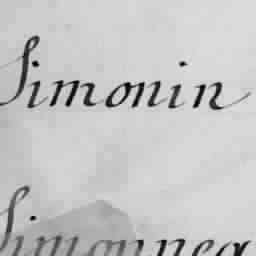 Simonin
Simonnea